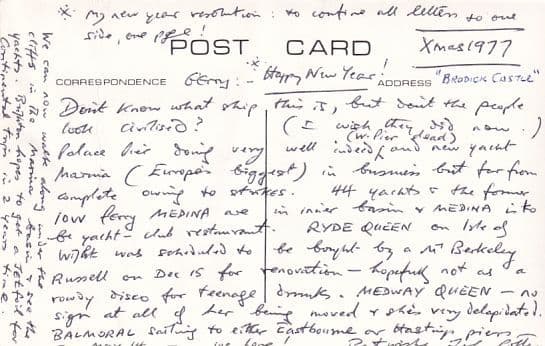 * My new year resolution: to confine all letters to one
side, one page!
POST CARD
Xmas 1977
* Happy New Year!
CORRESPONDENCE Gerry: - ADDRESS "BRODICK CASTLE"
Don't know what ship this is, but don't the people
look civilised? (I wish they did now.)
(W. Pier dead)
Palace Pier doing very well indeed, and new yacht
Marina (Europe's biggest) in business but far from
complete owing to strikes. 44 yachts & the former
IOW ferry MEDINA are in inner basin & MEDINA is to
be yacht-club restaurant. RYDE QUEEN on Isle of
Wight was scheduled to be bought by a Mr Berkeley
Russell on Dec 15 for renovation – hopefully not as a
rowdy disco for teenage drunks. MEDWAY QUEEN – no
sign at all of her being moved & she's very delapidated.
BALMORAL sailing to either Eastbourne or Hastings piers –
we hope! Best wishes
We can now walk along under the
cliffs in the Marina basin & see the
yachts. Brighton hopes to get a Jetfoil for
Continental trips in 2 years time.